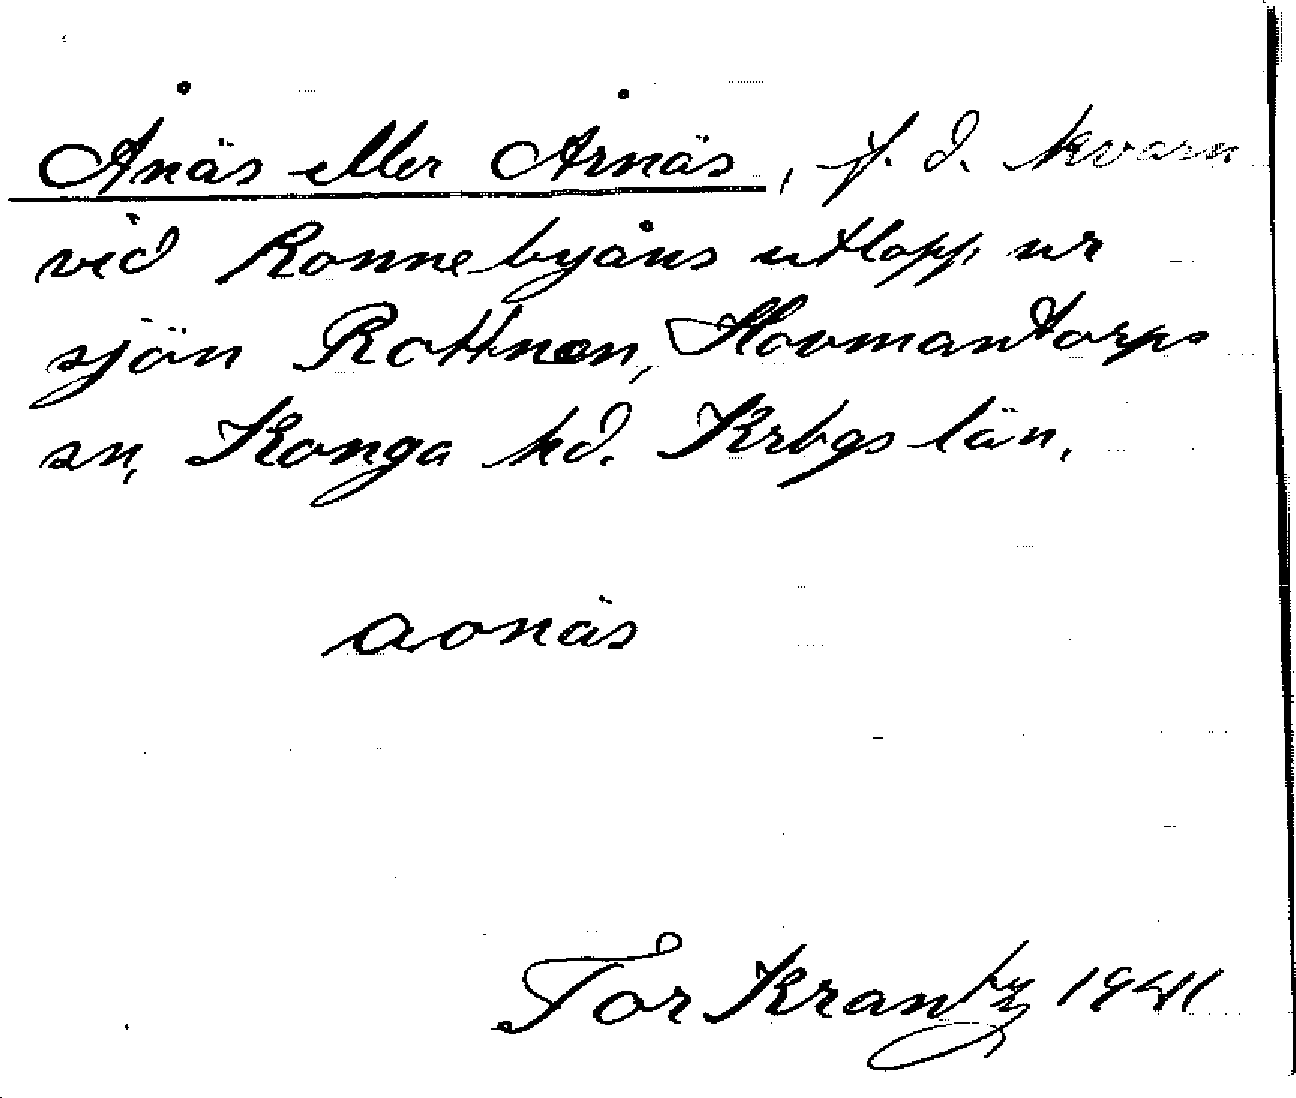 Ånäs eller Årnäs, f. d. kvarn
vid Ronnebyåns utlopp ur
sjön Rottnen, Hovmantorps
sn, Konga hd. Krbgs län.
aonäs
Tor Krantz 1941